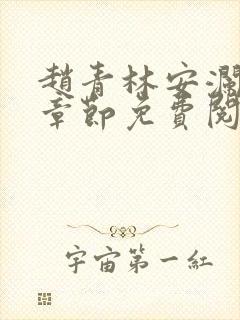 趙青林安瀾
章節免費閱
宇宙第一紅